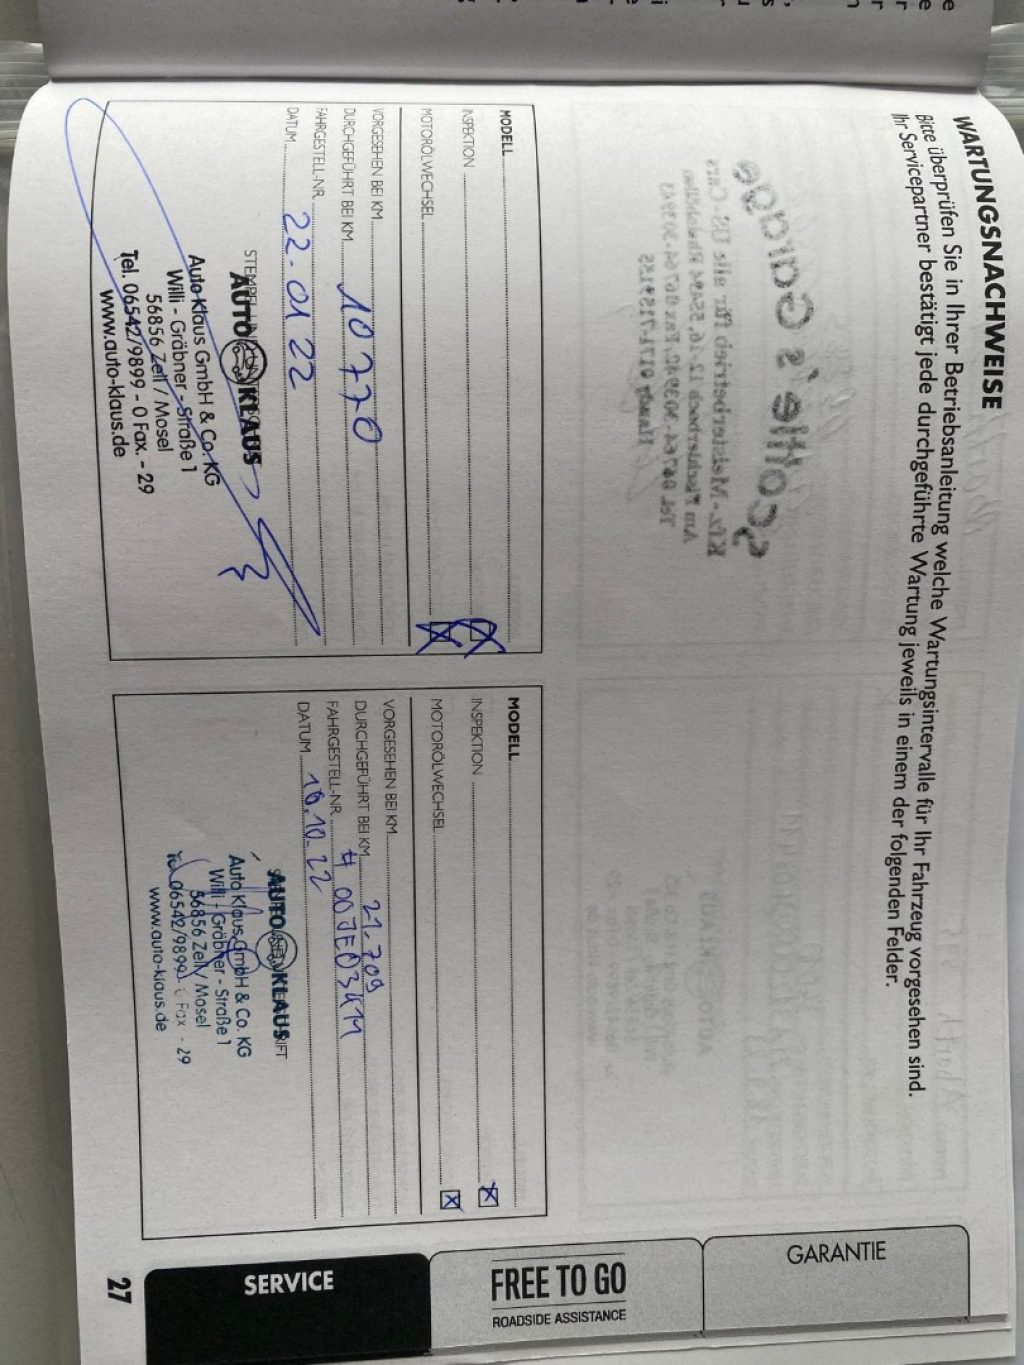 WARTUNGSNACHWEISE
Bitte überprüfen Sie in Ihrer Betriebsanleitung welche Wartungsintervalle für Ihr Fahrzeug vorgesehen sind.
Ihr Servicepartner bestätigt jede durchgeführte Wartung jeweils in einem der folgenden Felder.
MODELL
INSPEKTION
MOTORÖLWECHSEL
VORGESEHEN BEI KM
DURCHGEFÜHRT BEI KM 10770
FAHRGESTELL-NR.
DATUM 22.01 22
AUTO KLAUS
Auto Klaus GmbH & Co. KG
Willi - Gräbner - Straße 1
56856 Zell / Mosel
Tel. 06542/9899 - 0 Fax. - 29
www.auto-klaus.de
MODELL
INSPEKTION
MOTORÖLWECHSEL
VORGESEHEN BEI KM
DURCHGEFÜHRT BEI KM 21.709
FAHRGESTELL-NR.
DATUM 10.10.22
AUTO KLAUS
Auto Klaus GmbH & Co. KG
Willi - Gräbner - Straße 1
56856 Zell / Mosel
Tel. 06542/9899 Fax - 29
www.auto-klaus.de
GARANTIE
FREE TO GO
ROADSIDE ASSISTANCE
SERVICE
27